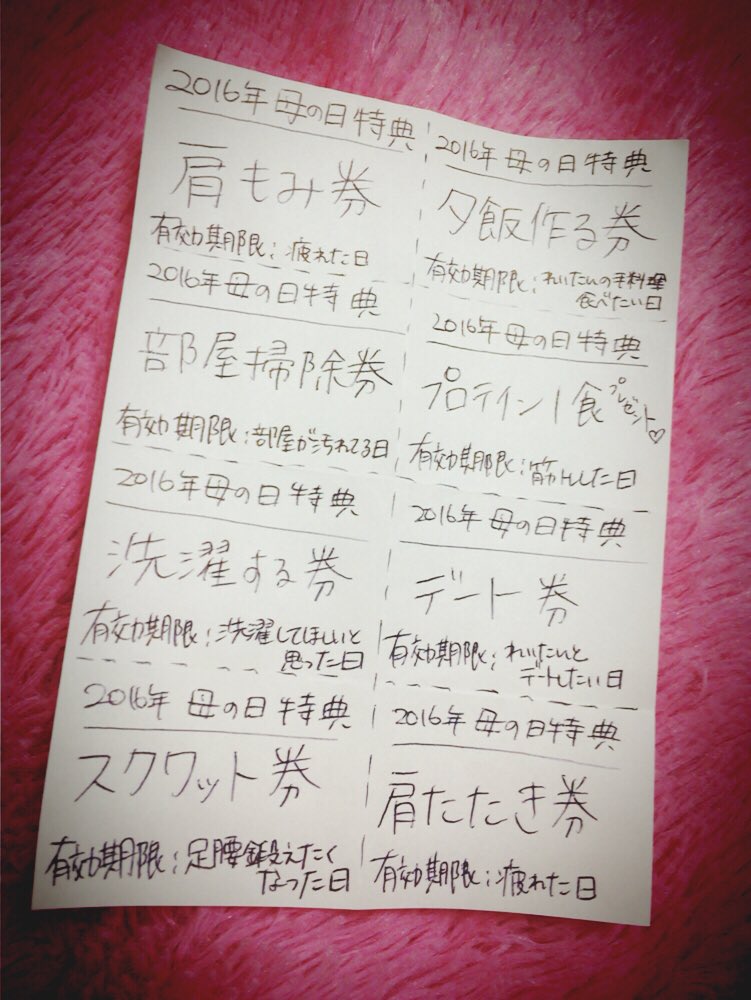 2016年 母の日 特典
肩もみ券
有効期限：疲れた日
2016年 母の日 特典
部屋掃除券
有効期限：部屋が汚れてる日
2016年母の日 特典
洗濯する券
有効期限：洗濯してほしいと
思った日
2016年 母の日 特典
スクワット券
有効期限：足腰鍛えたく
なった日
2016年 母の日 特典
夕飯作る券
有効期限：れいたんの手料理
食べたい日
2016年 母の日 特典
プロテイン1食プレゼント♡
有効期限：筋トレした日
2016年 母の日 特典
デート券
有効期限：れいたんと
デートしたい日
2016年 母の日 特典
肩たたき券
有効期限：疲れた日